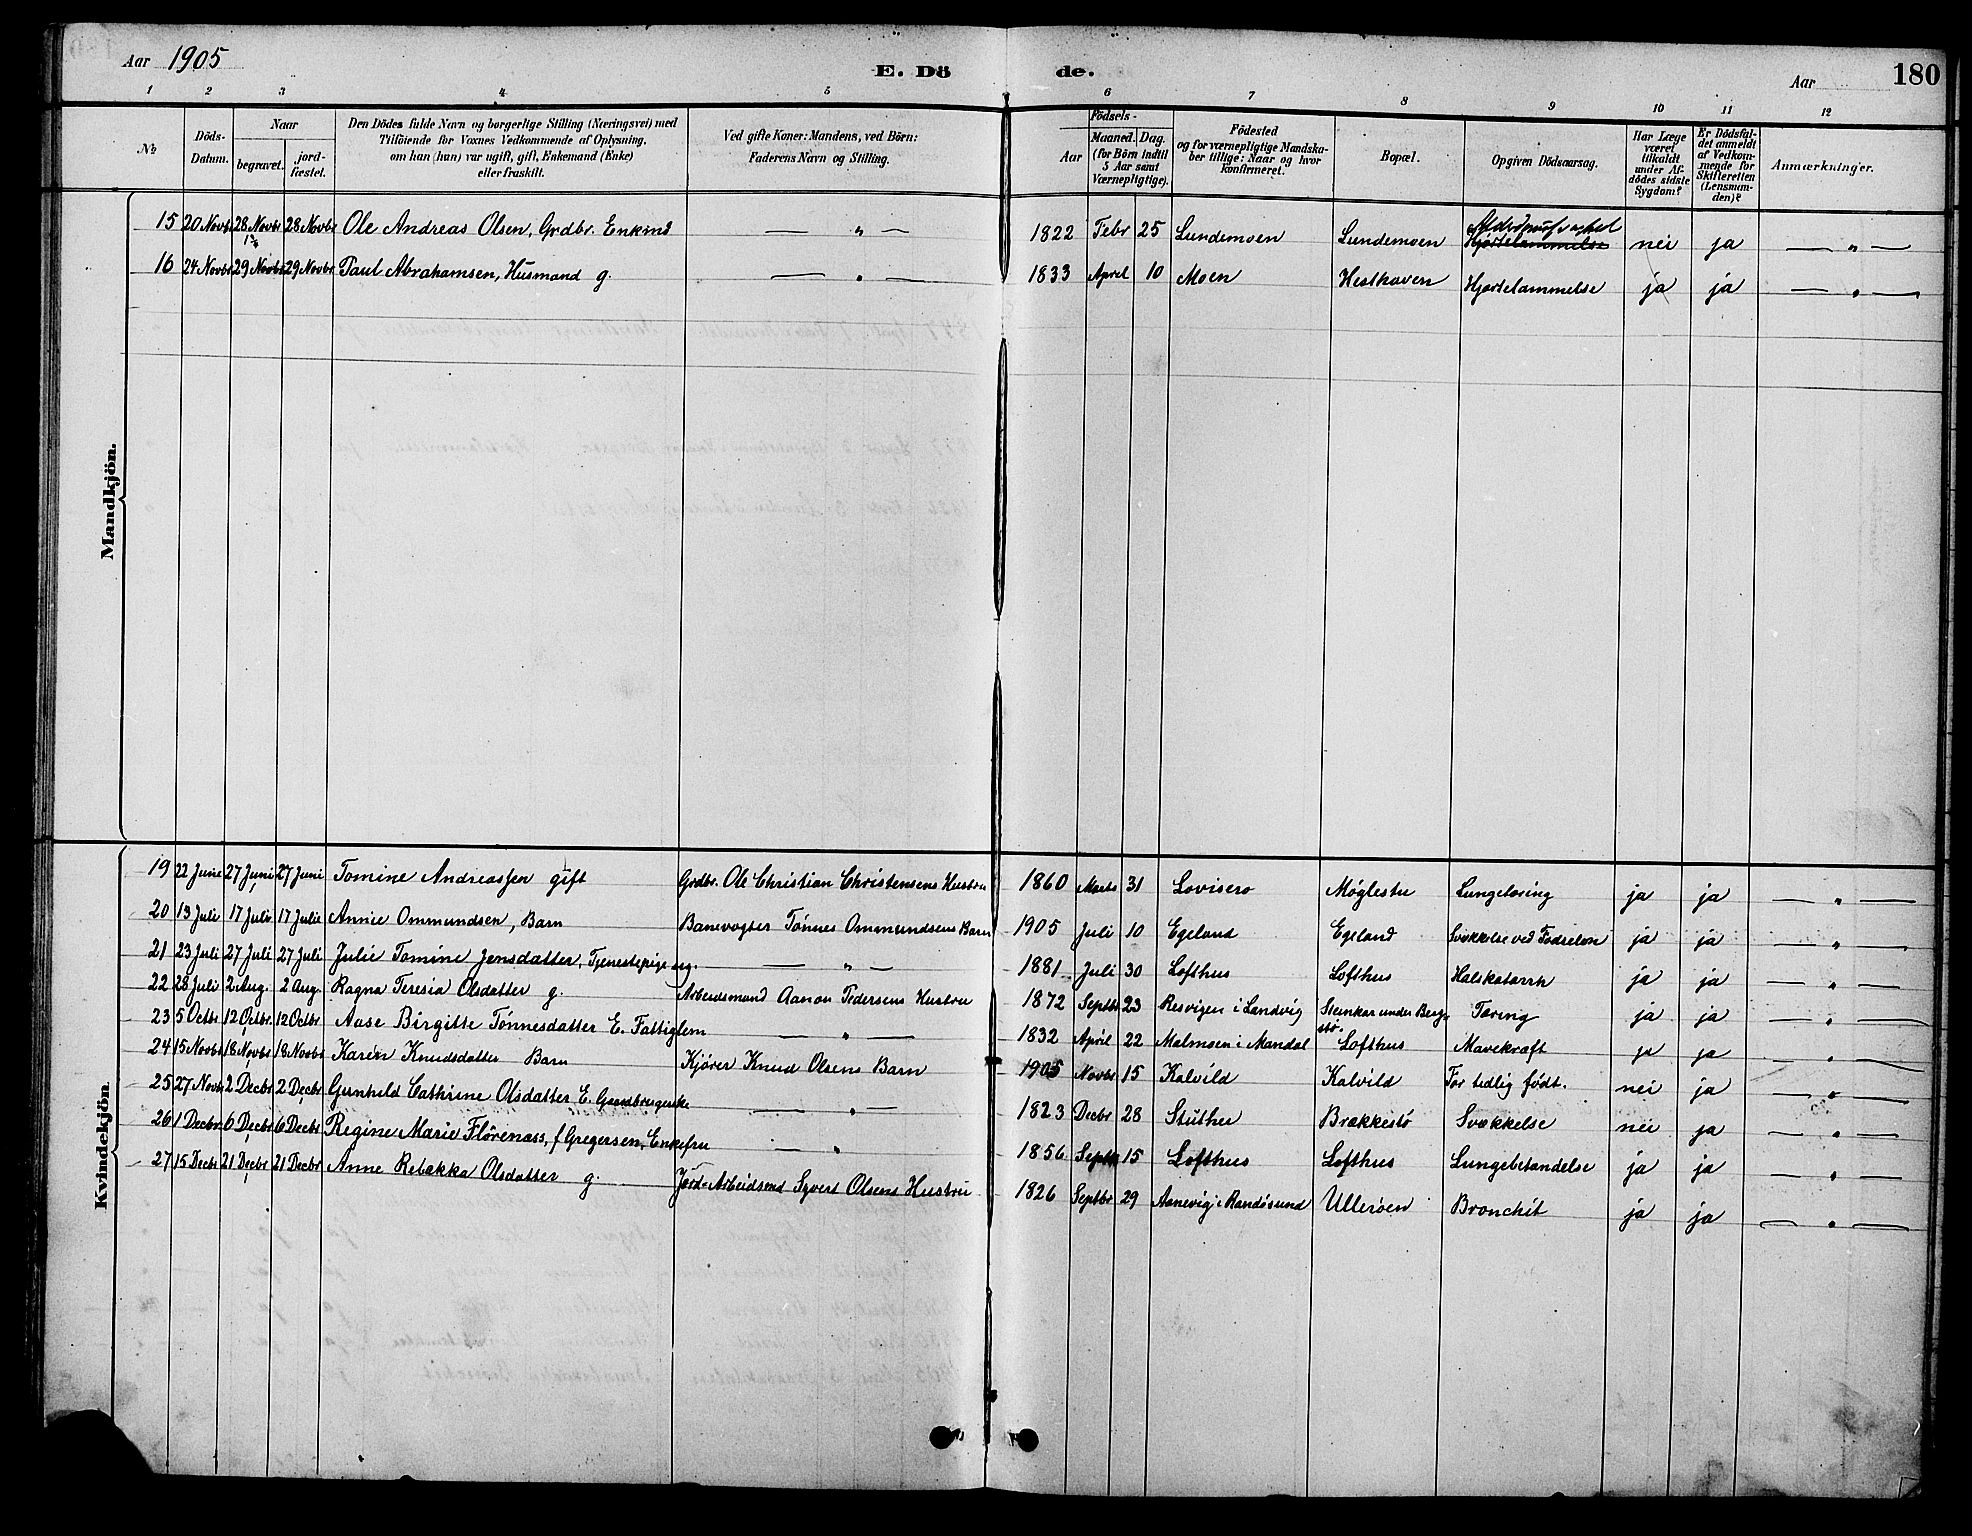 Aar 1905
E. Dö de.
Aar 180
1 2 3 4 5 6 7 8 9 10 11 12
No
Döds-Datum.
Naar
begravet.
jord-fæstet.
Den Dödes fulde Navn og borgerlige Stilling (Næringsvei) med
Tilföiende for Voxnes Vedkommende af Oplysning,
om han (hun) var ugift, gift, Enkemand (Enke)
eller fraskilt.
Ved gifte Koner: Mandens, ved Börn:
Faderens Navn og Stilling.
Födsels-
Aar
Maaned. Dag.
(for Börn indtil
5 Aar samt
Værnepligtige).
Födested
og for værnepligtige Mandska-
ber tillige: Naar og hvor
konfirmeret.
Bopæl.
Opgiven Dödsaarsag.
Har Læge
været
tilkaldt
under Af-
dödes sidste
Sygdom?
Er Dödsfal-
det anmeldt
af Vedkom-
mende for
Skifteretten
(Lensman-
den)?
Anmærkninger.
Mandkjön.
15 20 Novbr 28 Novbr 28 Novbr Ole Andreas Olsen, Grdbr. Enkmd — " — 1822 Febr 25 Lundemoen Lundemoen Hjertelammelse nei ja — " —
16 24 Novbr 29 Novbr 29 Novbr Paul Abrahamsen, Husmand g. — " — 1833 April 10 Moen Hesthaven Hjertelammelse ja ja — " —
Kvindekjön.
19 22 Juni 27 Juni 27 Juni Tomine Andreassen gift Grdbr. Ole Christian Christensens Hustru 1860 Marts 31 Lovisero Møglestu Lungetæring ja ja — " —
20 13 Juli 17 Juli 17 Juli Annie Ommundsen, Barn Banevogter Tønnes Ommundsens Barn 1905 Juli 10 Egeland Egeland Svækkelse ved Fødselen ja ja — " —
21 23 Juli 27 Juli 27 Juli Julie Tomine Jensdatter, Tjenestepige ug. — " — 1881 Juli 30 Lofthus Lofthus Halskatarrh ja ja — " —
22 28 Juli 2 Aug. 2 Aug. Ragna Teresia Olsdatter g. Arbeidsmand Aanon Pedersens Hustru 1872 Septbr 23 Resvigen i Landvig Stenkar under Berge-
stø. Tæring ja ja — " —
23 5 Octbr 12 Octbr 12 Octbr Aase Birgitte Tønnesdatter E. Fattiglem — " — 1832 April 22 Malmoen i Mandal Lofthus Mavekræft ja ja — " —
24 15 Novbr 18 Novbr 18 Novbr Karen Knudsdatter Barn Kjører Knud Olsens Barn 1905 Novbr 15 Kalvild Kalvild For tidlig født. nei ja — " —
25 27 Novbr 2 Decbr 2 Decbr Gunhild Cathrine Olsdatter E. Gaardbrugerske — " — 1823 Decbr 28 Stuthei Brækkestø Svækkelse nei ja — " —
26 1 Decbr. 6 Decbr 6 Decbr Regine Marie Flørenæss, f Gregersen, Enkefru — " — 1856 Septbr 15 Lofthus Lofthus Lungebetændelse ja ja — " —
27 15 Decbr 21 Decbr 21 Decbr Anne Rebækka Olsdatter g. Jord-Arbeidsmd Syvert Olsens Hustru 1826 Septbr 29 Aanevig i Randøsund Ullerøen Bronchit ja ja — " —